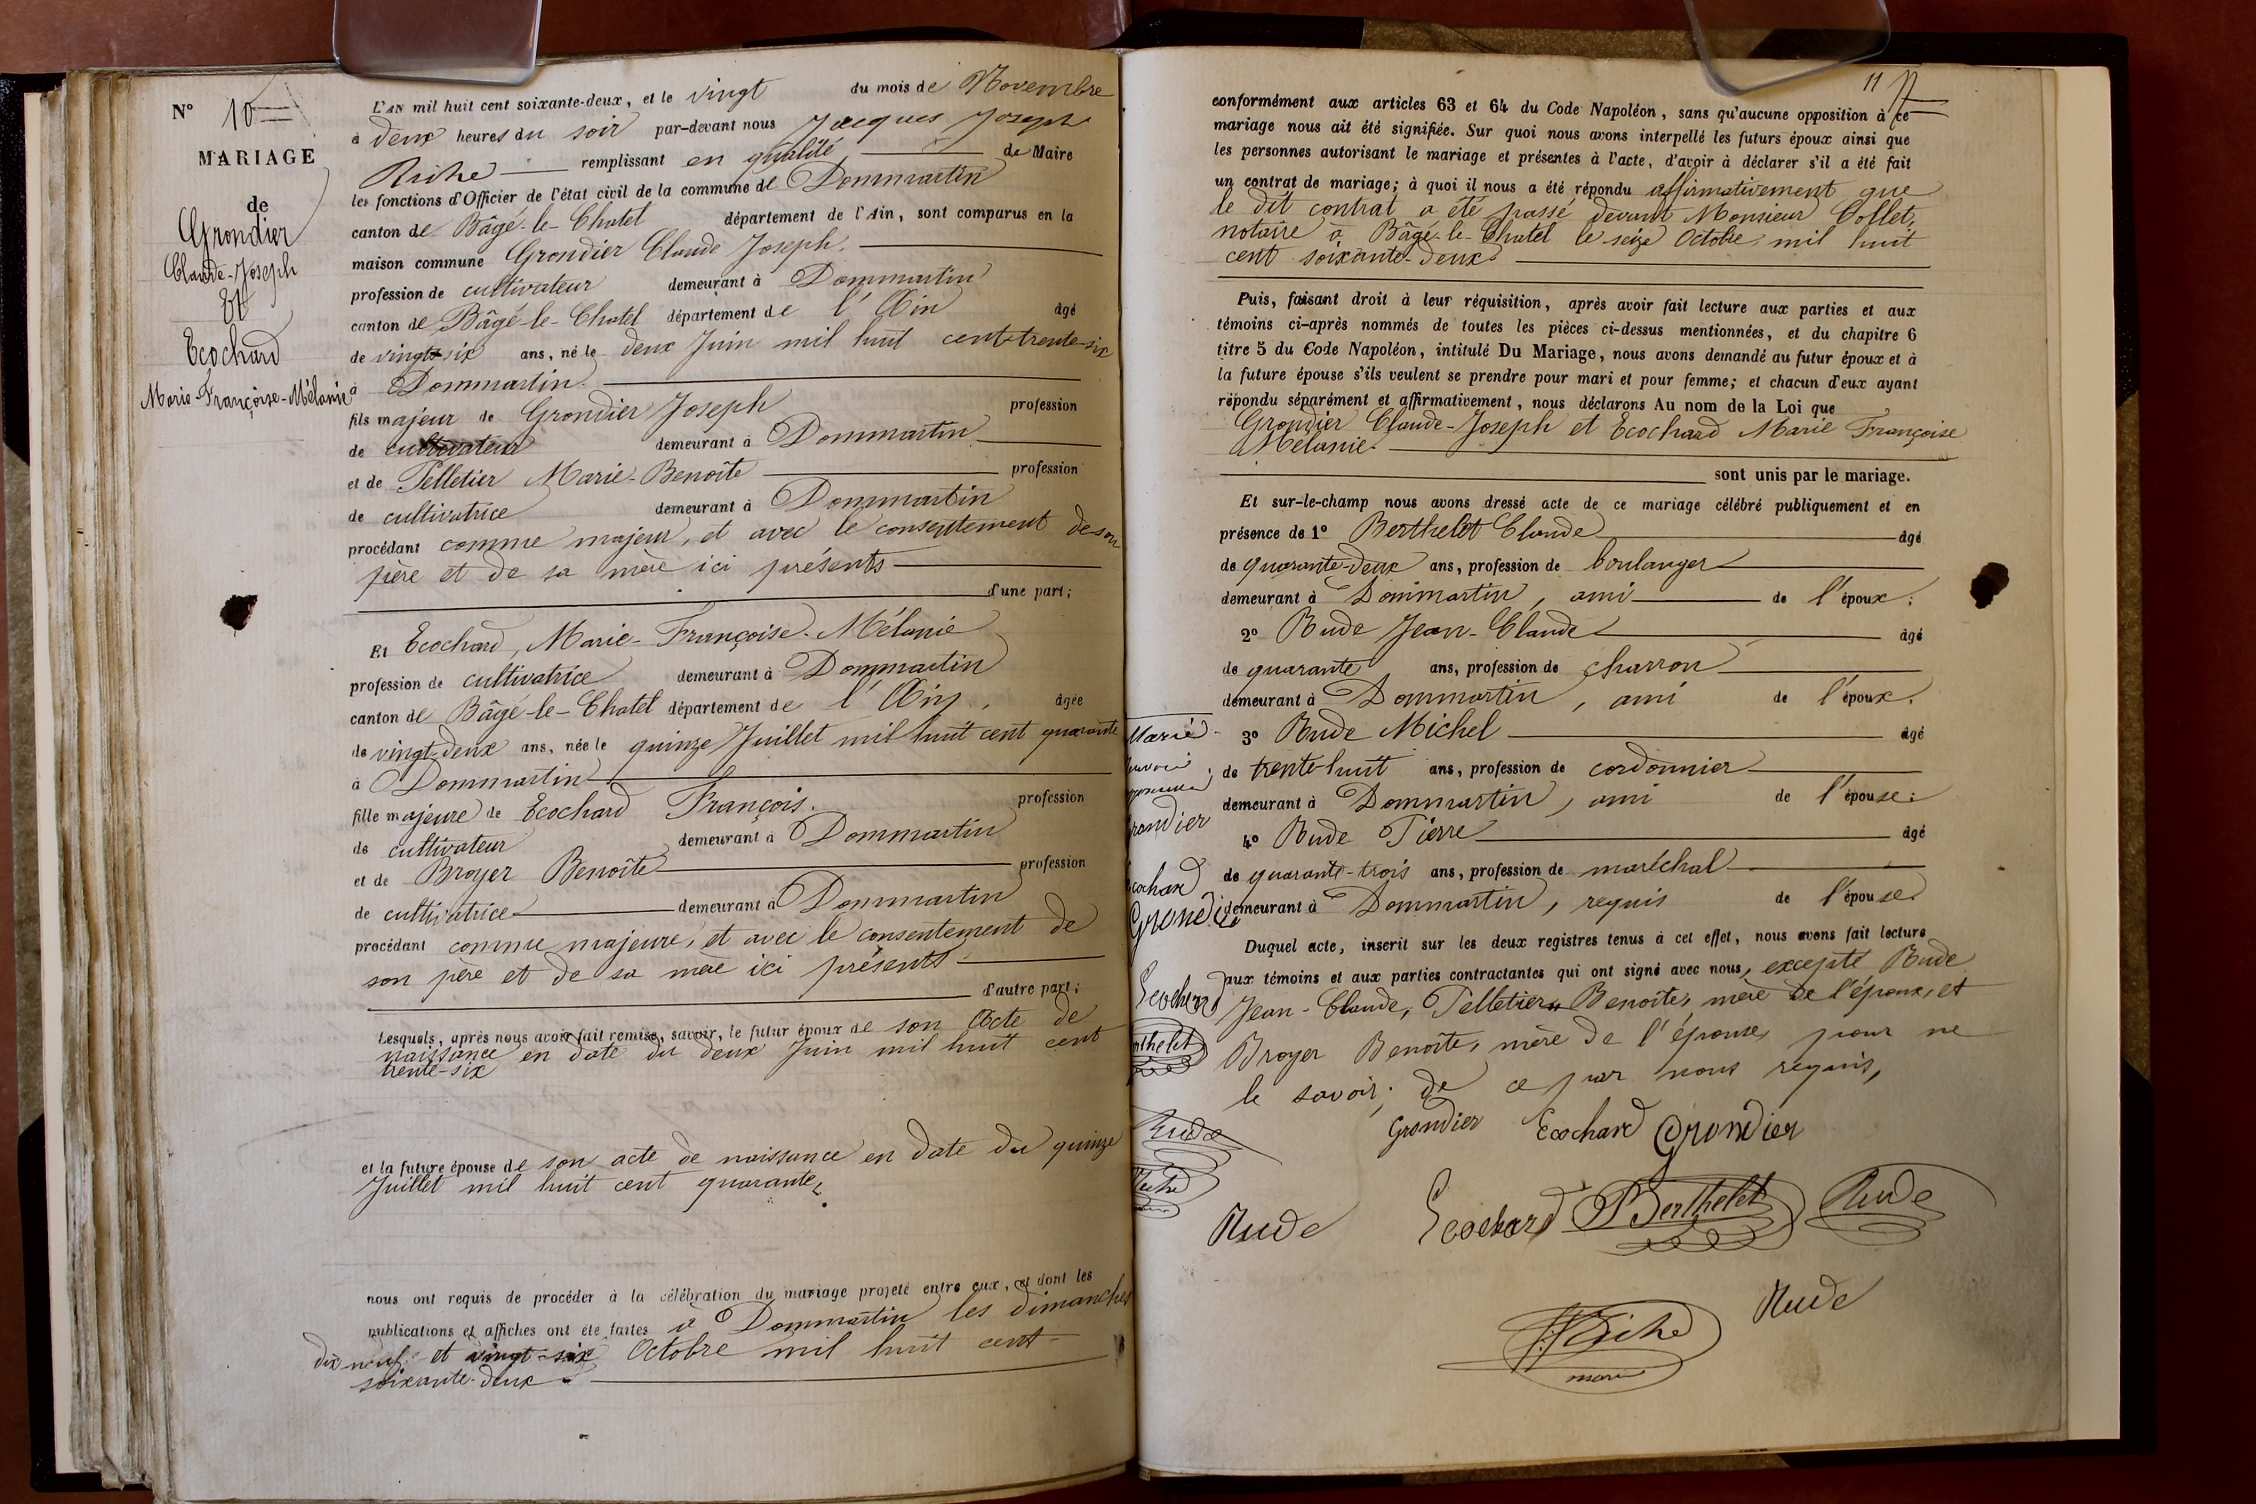 N° 10
MARIAGE
de
Grondier
Claude-Joseph
Et
Ecochard
Marie-Françoise-Mélanie
L'AN mil huit cent soixante-deux, et le vingt du mois de Novembre
à deux heures du soir par-devant nous Jacques Joseph
Riche remplissant en qualité de Maire
les fonctions d'Officier de l'état civil de la commune de Dommartin
canton de Bâgé-le-Chatel département de l'Ain, sont comparus en la
maison commune Grondier Claude Joseph.
profession de cultivateur demeurant à Dommartin
canton de Bâgé-le-Chatel département de l'Ain âgé
de vingt-six ans, né le deux Juin mil huit cent trente-six
à Dommartin.
fils majeur de Grondier Joseph profession
de cultivateur demeurant à Dommartin
et de Pelletier Marie-Benoîte profession
de cultivatrice demeurant à Dommartin
procédant comme majeur, et avec le consentement de son
père et de sa mère ici présents
d'une part;
Et Ecochard, Marie-Françoise-Mélanie
profession de cultivatrice demeurant à Dommartin
canton de Bâgé-le-Chatel département de l'Ain, âgée
de vingt-deux ans, née le quinze Juillet mil huit cent quarante
à Dommartin
fille majeure de Ecochard François. profession
de cultivateur demeurant à Dommartin
et de Broyer Benoîte profession
de cultivatrice demeurant à Dommartin
procédant comme majeure, et avec le consentement de
son père et de sa mère ici présents
d'autre part;
Lesquels, après nous avoir fait remise, savoir, le futur époux de son Acte de
naissance en date du deux Juin mil huit cent
trente-six
et la future épouse de son acte de naissance en date du quinze
Juillet mil huit cent quarante,
nous ont requis de procéder à la célébration du mariage projeté entre eux, et dont les
publications et affiches ont été faites à Dommartin les dimanches
dix neuf et vingt-six Octobre mil huit cent
soixante-deux
11
conformément aux articles 63 et 64 du Code Napoléon, sans qu'aucune opposition à ce
mariage nous ait été signifiée. Sur quoi nous avons interpellé les futurs époux ainsi que
les personnes autorisant le mariage et présentes à l'acte, d'avoir à déclarer s'il a été fait
un contrat de mariage; à quoi il nous a été répondu affirmativement que
le dit contrat a été passé devant Monsieur Collet,
notaire à Bâgé-le-Chatel le seize Octobre mil huit
cent soixante-deux
Puis, faisant droit à leur réquisition, après avoir fait lecture aux parties et aux
témoins ci-après nommés de toutes les pièces ci-dessus mentionnées, et du chapitre 6
titre 5 du Code Napoléon, intitulé Du Mariage, nous avons demandé au futur époux et à
la future épouse s'ils veulent se prendre pour mari et pour femme; et chacun d'eux ayant
répondu séparément et affirmativement, nous déclarons Au nom de la Loi que
Grondier Claude-Joseph et Ecochard Marie Françoise
Mélanie.
sont unis par le mariage.
Et sur-le-champ nous avons dressé acte de ce mariage célébré publiquement et en
présence de 1° Berthelet Claude âgé
de quarante-deux ans, profession de boulanger
demeurant à Dommartin, ami de l'époux;
2° Rude Jean-Claude âgé
de quarante ans, profession de charron
demeurant à Dommartin, ami de l'époux.
3° Rude Michel âgé
de trente-huit ans, profession de cordonnier
demeurant à Dommartin, ami de l'épouse;
4° Rude Pierre âgé
de quarante-trois ans, profession de maréchal
demeurant à Dommartin, requis de l'épouse
Duquel acte, inscrit sur les deux registres tenus à cet effet, nous avons fait lecture
aux témoins et aux parties contractantes qui ont signé avec nous, excepté Rude
Jean-Claude, Pelletier Benoîte, mère de l'époux, et
Broyer Benoîte, mère de l'épouse, pour ne
le savoir; de ce par nous requis,
Grondier Ecochard Grondier
Rude Ecochard Berthelet Rude
Rude
Riche
maire